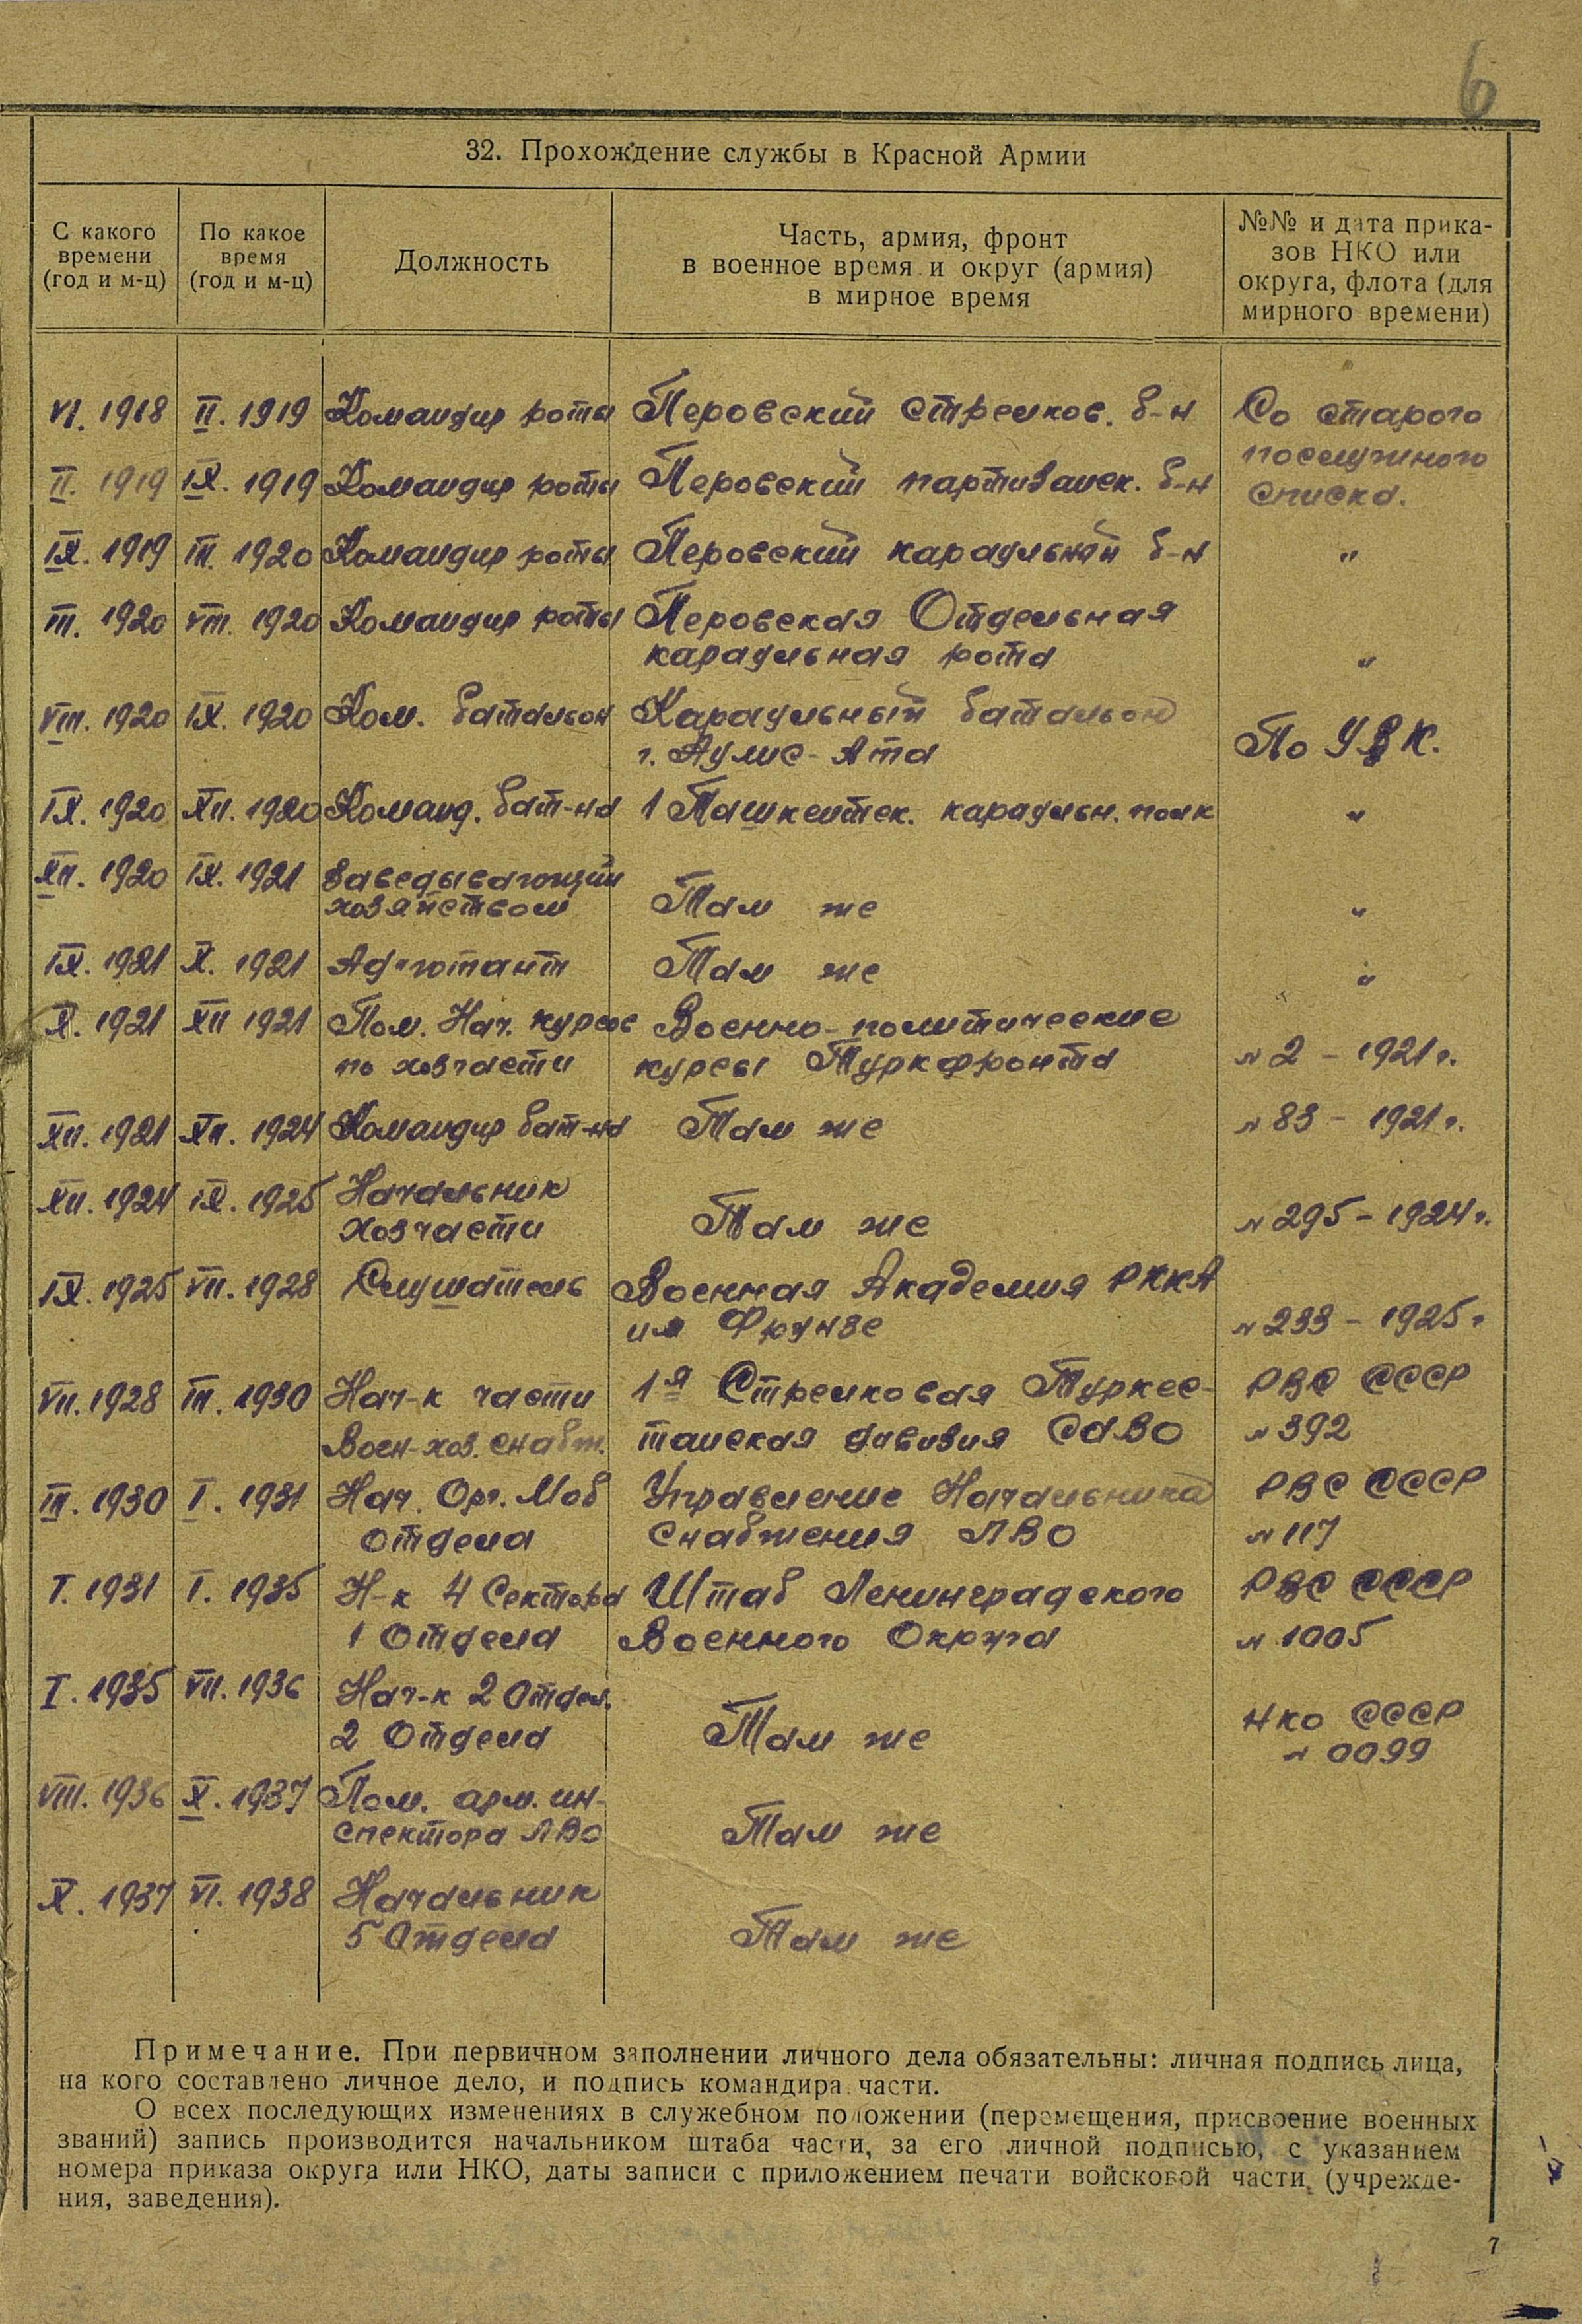 6
32. Прохождение службы в Красной Армии
С какого времени (год и м-ц)
По какое время (год и м-ц)
Должность
Часть, армия, фронт
в военное время и округ (армия)
в мирное время
№№ и дата прика-
зов НКО или
округа, флота (для
мирного времени)
VI. 1918 II. 1919 Командир роты Перовский стрелков. б-н Со старого
послужного
II. 1919 IX. 1919 Командир роты Перовский партизанск. б-н списка.
IX. 1919 III. 1920 Командир роты Перовский караульный б-н "
III. 1920 VIII. 1920 Командир роты Перовская Отдельная
караульная рота "
VIII. 1920 IX. 1920 Ком. батальон Караульный батальон
г. Аулие-Ата По УВК.
IX. 1920 XII. 1920 Команд. бат-на 1 Ташкентск. караульн. полк "
XII. 1920 IX. 1921 Заведывающий
хозяйством Там же "
IX. 1921 X. 1921 Ад"ютант Там же "
X. 1921 XII 1921 Пом. Нач. курсов Военно-политические
по хозчасти курсы Туркфронта № 2 - 1921 г.
XII. 1921 XII. 1924 Командир бат-на Там же № 83 - 1921 г.
XII. 1924 IX. 1925 Начальник
хозчасти Там же № 295 - 1924 г.
IX. 1925 VII. 1928 Слушатель Военная Академия РККА
им Фрунзе № 233 - 1925 г
VII. 1928 III. 1930 Нач-к части 1я Стрелковая Туркес- РВС СССР
Воен-хоз. снабж. танская дивизия САВО № 392
III. 1930 I. 1931 Нач. Орг. Моб Управление Начальника РВС СССР
Отдела Снабжения ЛВО № 117
I. 1931 I. 1935 Н-к 4 Сектора Штаб Ленинградского РВС СССР
1 Отдела Военного Округа № 1005
I. 1935 VII. 1936 Нач-к 2 Отдел.
2 Отдела Там же НКО СССР
№ 0099
VIII. 1936 X. 1937 Пом. арм. ин-
спектора ЛВО Там же
X. 1937 VI. 1938 Начальник
5 Отдела Там же
Примечание. При первичном заполнении личного дела обязательны: личная подпись лица,
на кого составлено личное дело, и подпись командира части.
О всех последующих изменениях в служебном положении (перемещения, присвоение военных
званий) запись производится начальником штаба части, за его личной подписью, с указанием
номера приказа округа или НКО, даты записи с приложением печати войсковой части (учрежде-
ния, заведения).
7